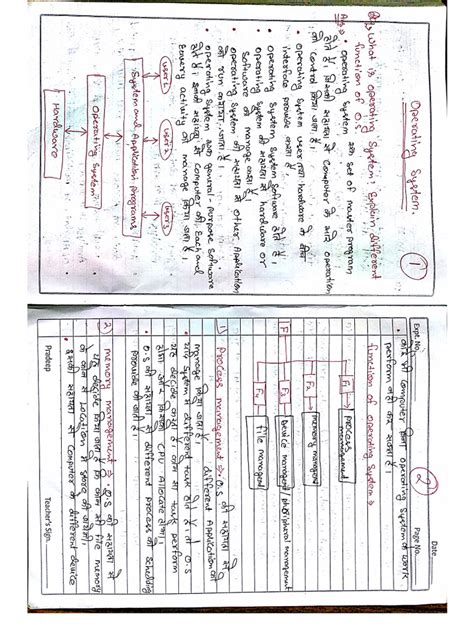 Operating System
1
Q1. What is operating System? Explain different
function of O.S
Ans → • operating System एक set of master program
होते है। जिसकी सहायता से Computer के सारे operation
को Control किया जाता है।
• operating System user तथा hardware के बीच
interface provide करता है।
• operating System, System Software होते है।
• operating System की सहायता से hardware or
Software को manage करते है
• operating System की सहायता से other Application
को run कराया जाता है।
• operating System एक general-purpose software
होते है। इसकी सहायता से Computer की Each and
Every activity को manage किया जाता है।
user1 user2 user3
System and Application programs
Operating System
Hardware
Expt. No.
Date
Page No.
2
• कोई भी Computer बिना operating System के work
perform नहीं कर सकता है।
function of operating System →
F
F1 process management
F2 memory managment
F3 Device managment/peripheral management
F4 file managment
1) Process management → O.S की सहायता से
different Application को
manage किया जाता है।
• यदि System में different task होते है। तो O.S
यह decide करता है। कौन सा task perform
होगा और किसको CPU Allocate होगा।
• O.S की सहायता से different process की Scheduling
provide की जाती है।
2) memory management → • O.S की सहायता से
यह decide किया जाता है कि कौन सी file memory
के कौन से Location में store की जायेगी।
• इसकी सहायता से Computer के different device
Pradeep
Teacher's Sign.